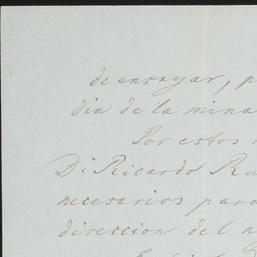 de ensayar, p
dia de la mina
Por estos
Dn Ricardo Ru
necesarios para
direccion del n